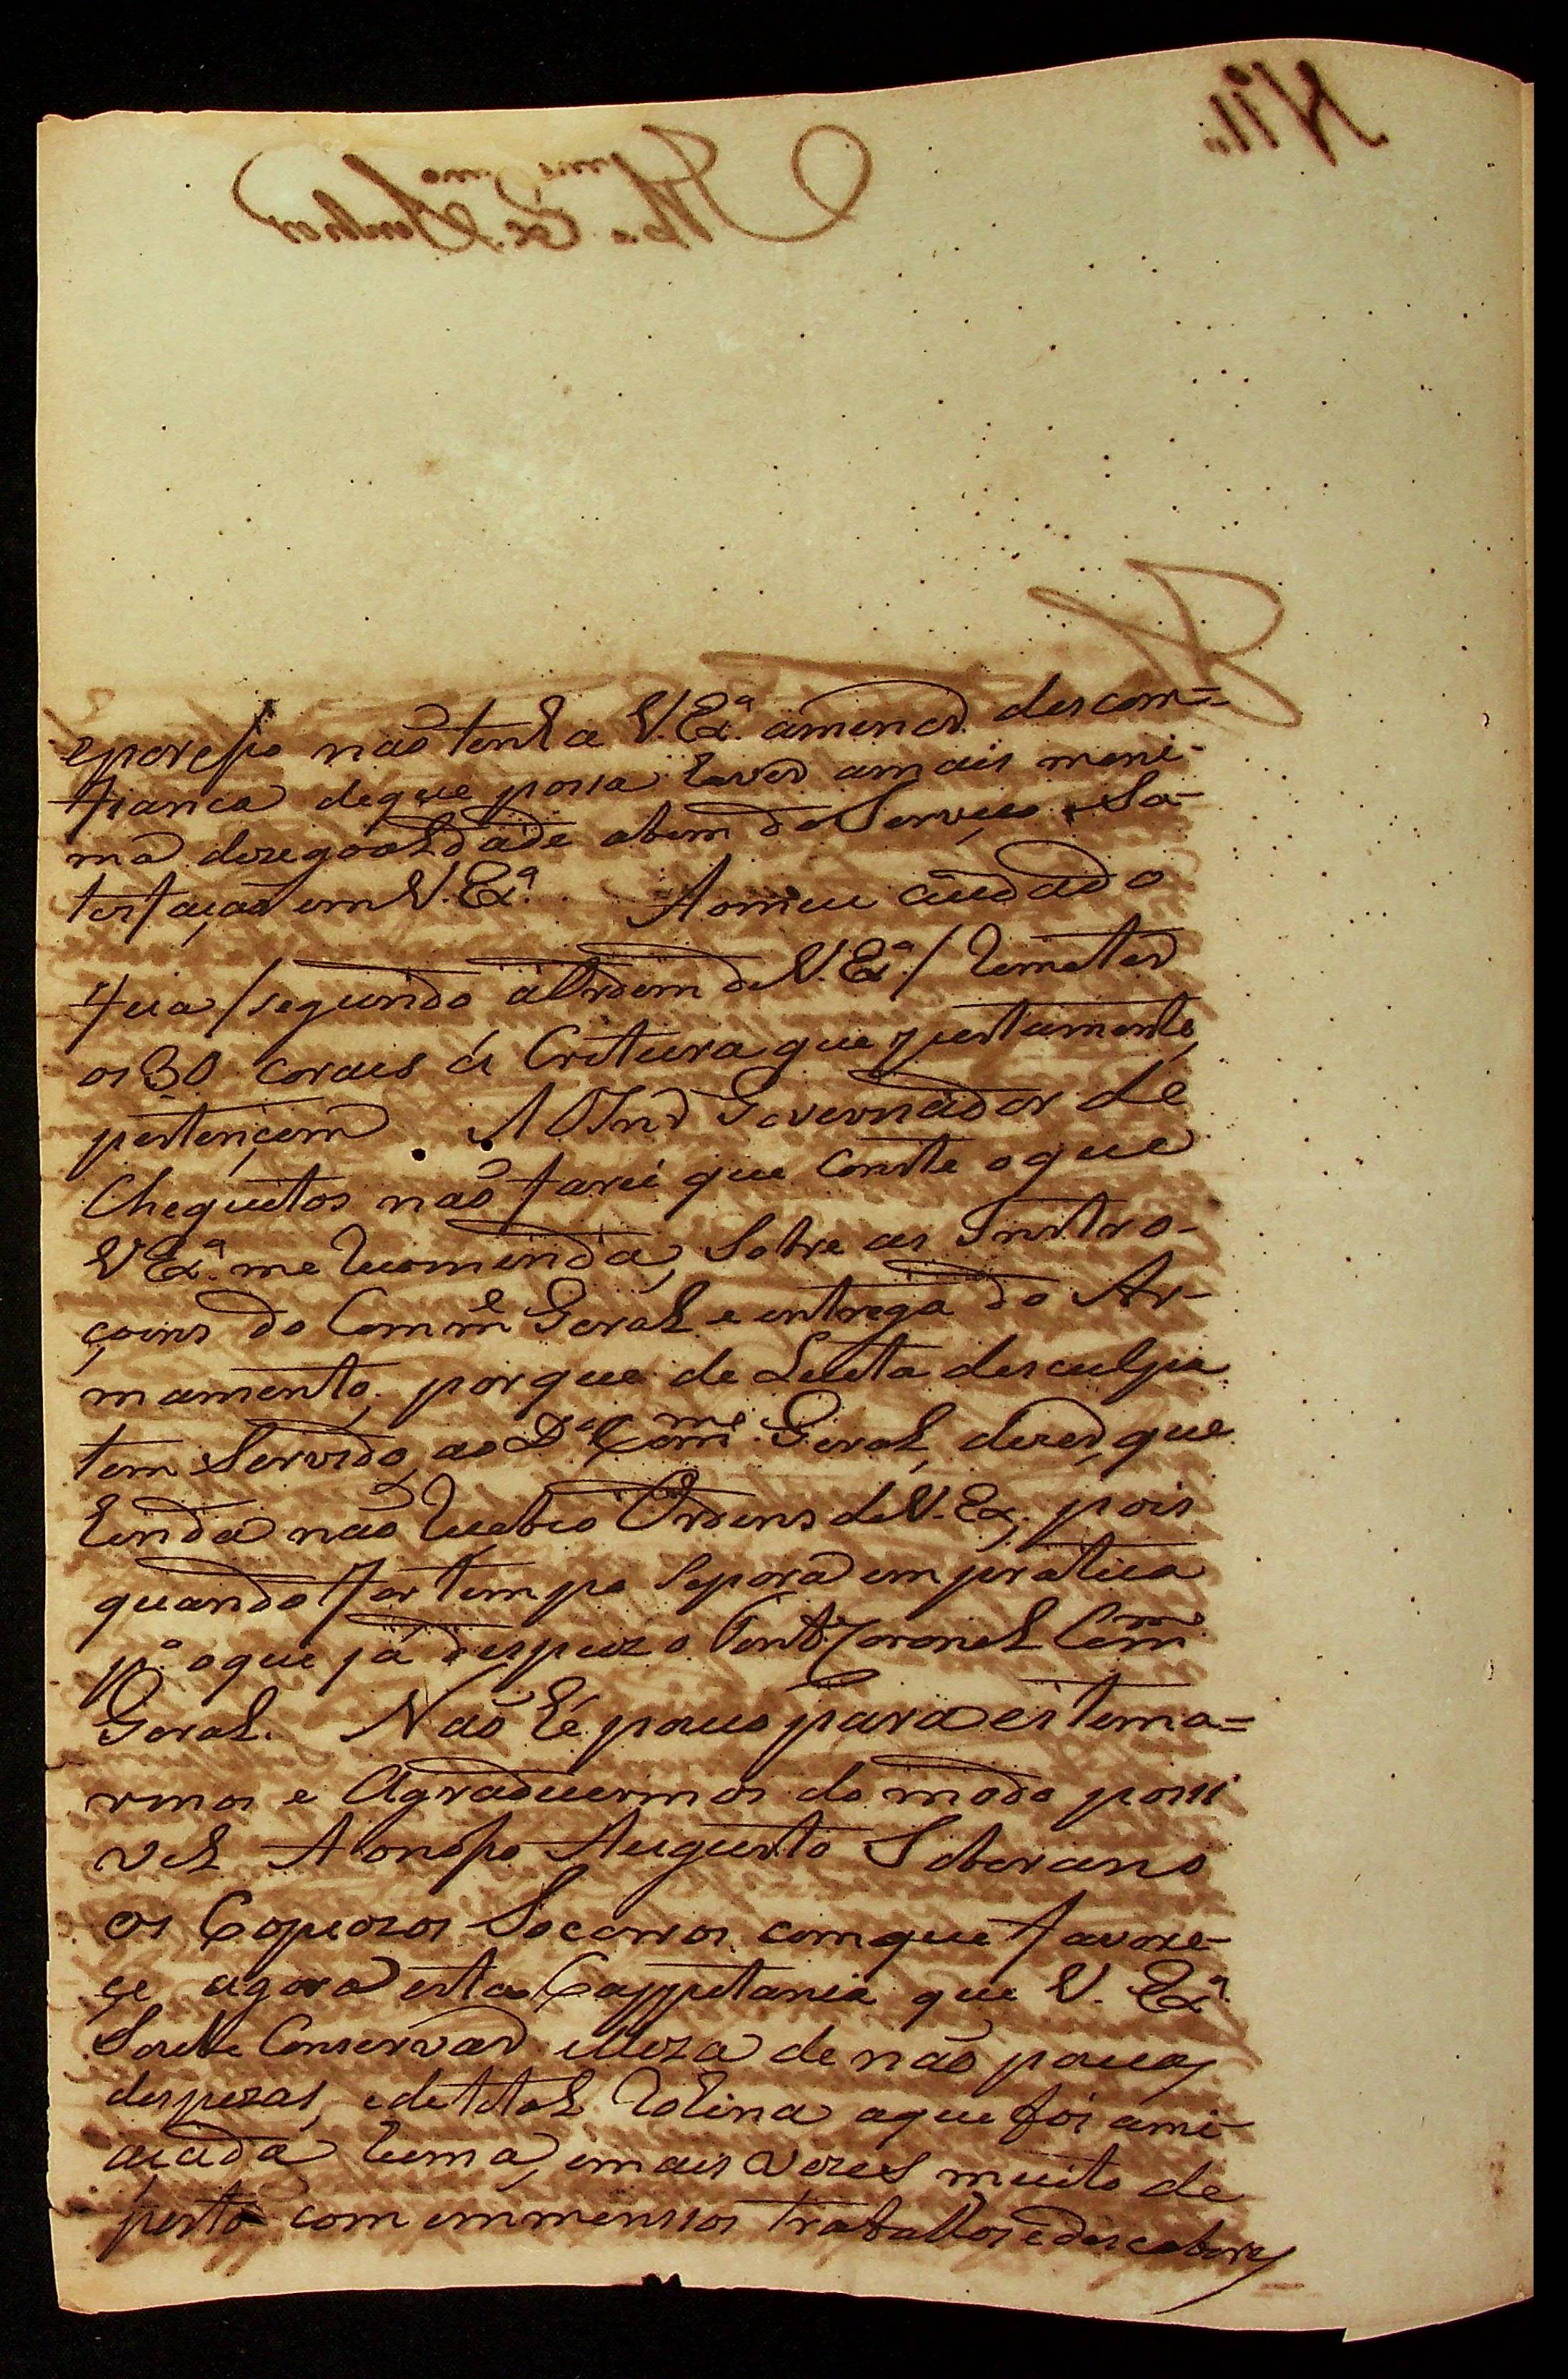 eporesso não tenha V. Exª. amenor descom=
fianca deque possa haver amais meni-
ma dezegoaldade abem do Serviço e Sa-
tesfação em V. Exª. Aomeu cuidado
fica / segundo aOrdem de V. Exª. / Remeter
os 30 corais á Creturia que justamente
pertençem. AOSnr Governador de
Chequitos não farei que conste oque
V Exª. me Recomenda, Sobre as Instro-
çoens do Comm.e Geral e entrega do Ar-
mamento, porque de Seleta desculpa
tem Servido ao Dº Comm.e Geral, dezer, que
hinda não Recebeo Ordens de V. Exª. pois
quando for tempo Seporá em pratica
pº. oque já despuz o Tent. Coronel Comm.e
Geral. Não hé pouco para estema=
rmos e Agradecermos do modo possi
vel Aonosso Augusto Soberano
os Copiozos Socorros comque favore-
çe agora esta Cappitania que V. Exª.
Soube Conservar illeza de não poucas
despezas, edetotal Rohina aque foi ame-
açada huma, emais vezes muito de
perto com emmenssos trabalhos edescabores